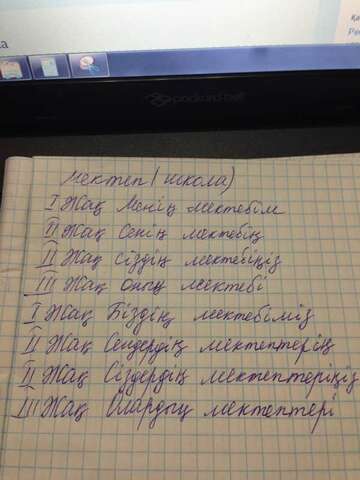 packard bell
мектеп (школа)
I Жақ Менің мектебім
II Жақ Сенің мектебің
II Жақ сіздің мектебіңіз
III Жақ оның мектебі
I Жақ Біздің мектебіміз
II Жақ Сендердің мектептерің
II Жақ Сіздердің мектептеріңіз
III Жақ Олардың мектептері